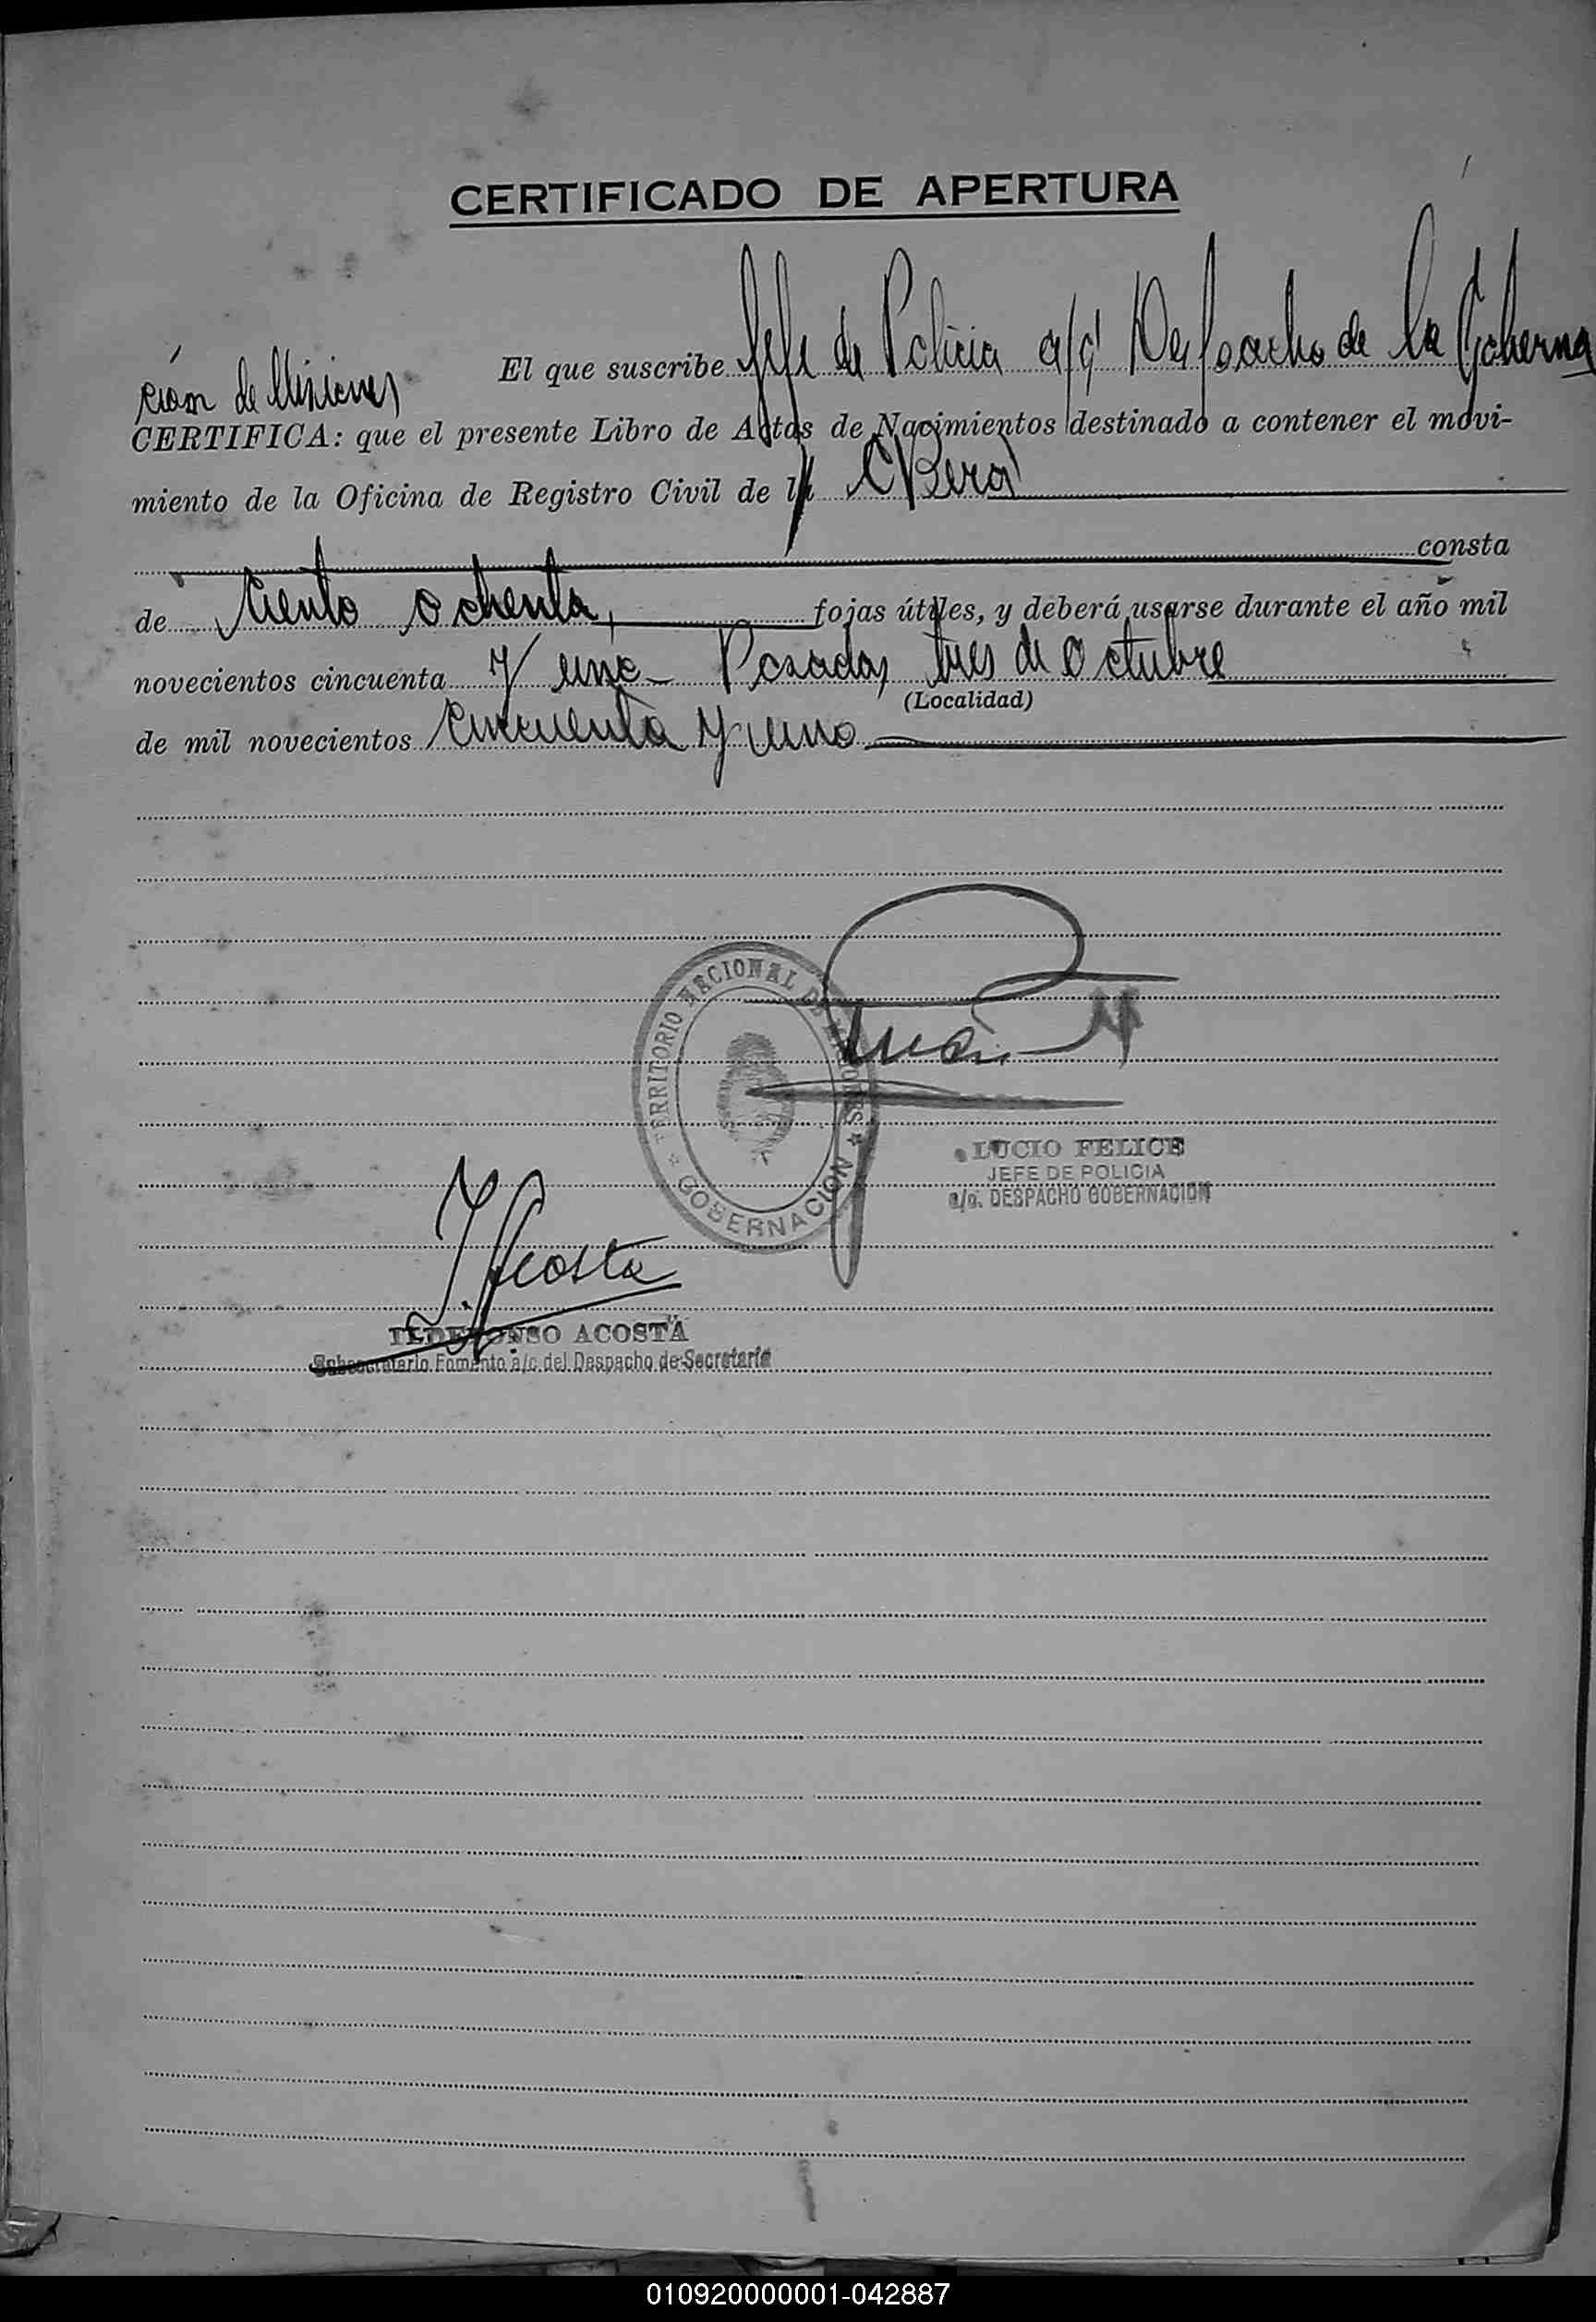 CERTIFICADO DE APERTURA
El que suscribe Jefe de Policia a/c/ Despacho de la Goberna
ción de Misiones
CERTIFICA: que el presente Libro de Actas de Nacimientos destinado a contener el movi-
miento de la Oficina de Registro Civil de Oberá
consta
de ciento ochenta, fojas útiles, y deberá usarse durante el año mil
novecientos cincuenta y uno Posadas, tres de Octubre
(Localidad)
de mil novecientos cincuenta y uno
TERRITORIO NACIONAL DE MISIONES
GOBERNACION
LUCIO FELICE
JEFE DE POLICIA
a/c. DESPACHO GOBERNACION
I. Acosta
ILDEFONSO ACOSTA
Subsecretario Fomento a/c del Despacho de Secretaría
010920000001-042887